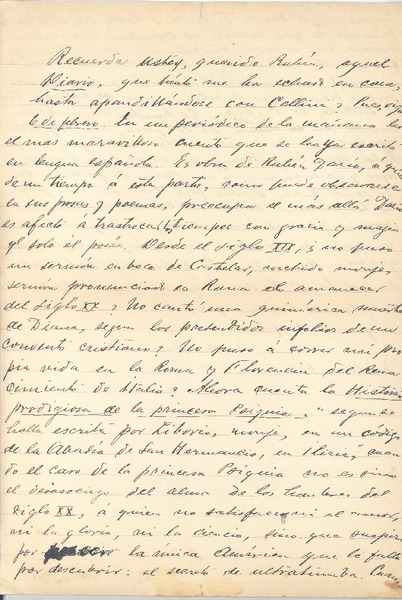 Recuerda usted, querido Rubén, aquel
Diario, que tánto me ha echado en cara,
hasta apandillandose con Cellini? Pues, oiga
6 de febrero. En un periódico de la mañana leo
el mas maravilloso cuento que se haya escrito
en lengua española. Es obra de Rubén Darío, á quien
de un tiempo á esta parte, como puede observarse
en sus prosas y poemas, preocupa el más allá. Darío
es afecto á trastrocar tiempos con gracia y magia
q! solo el posée. Desde el siglo XIX, ¿no puso
un sermón en boca de Castelar, metido monje,
sermón pronunciado en Roma al amanecer
del siglo XX? No cantó una quimérica muerte
de Diana, segun los pretendidos infolios de un
convento cristiano? No puso á correr su pro
pia vida en la Roma y Florencia del Rena
cimiento de Italia? Ahora cuenta la Historia
prodigiosa de la princesa Psiquia, "segun se
halla escrita por Liborio, monje, en un códice
de la Abadía de San Hermancio, en Iliria", cuan
do el caso de la princesa Psiquia no es sino
el desasosiego del alma de los hombres del
siglo XX, á quien no satisfacen ni el amor,
ni la gloria, ni la ciencia, sino que suspira
por la única América que le falta
por descubrir: el secreto de ultratumba.